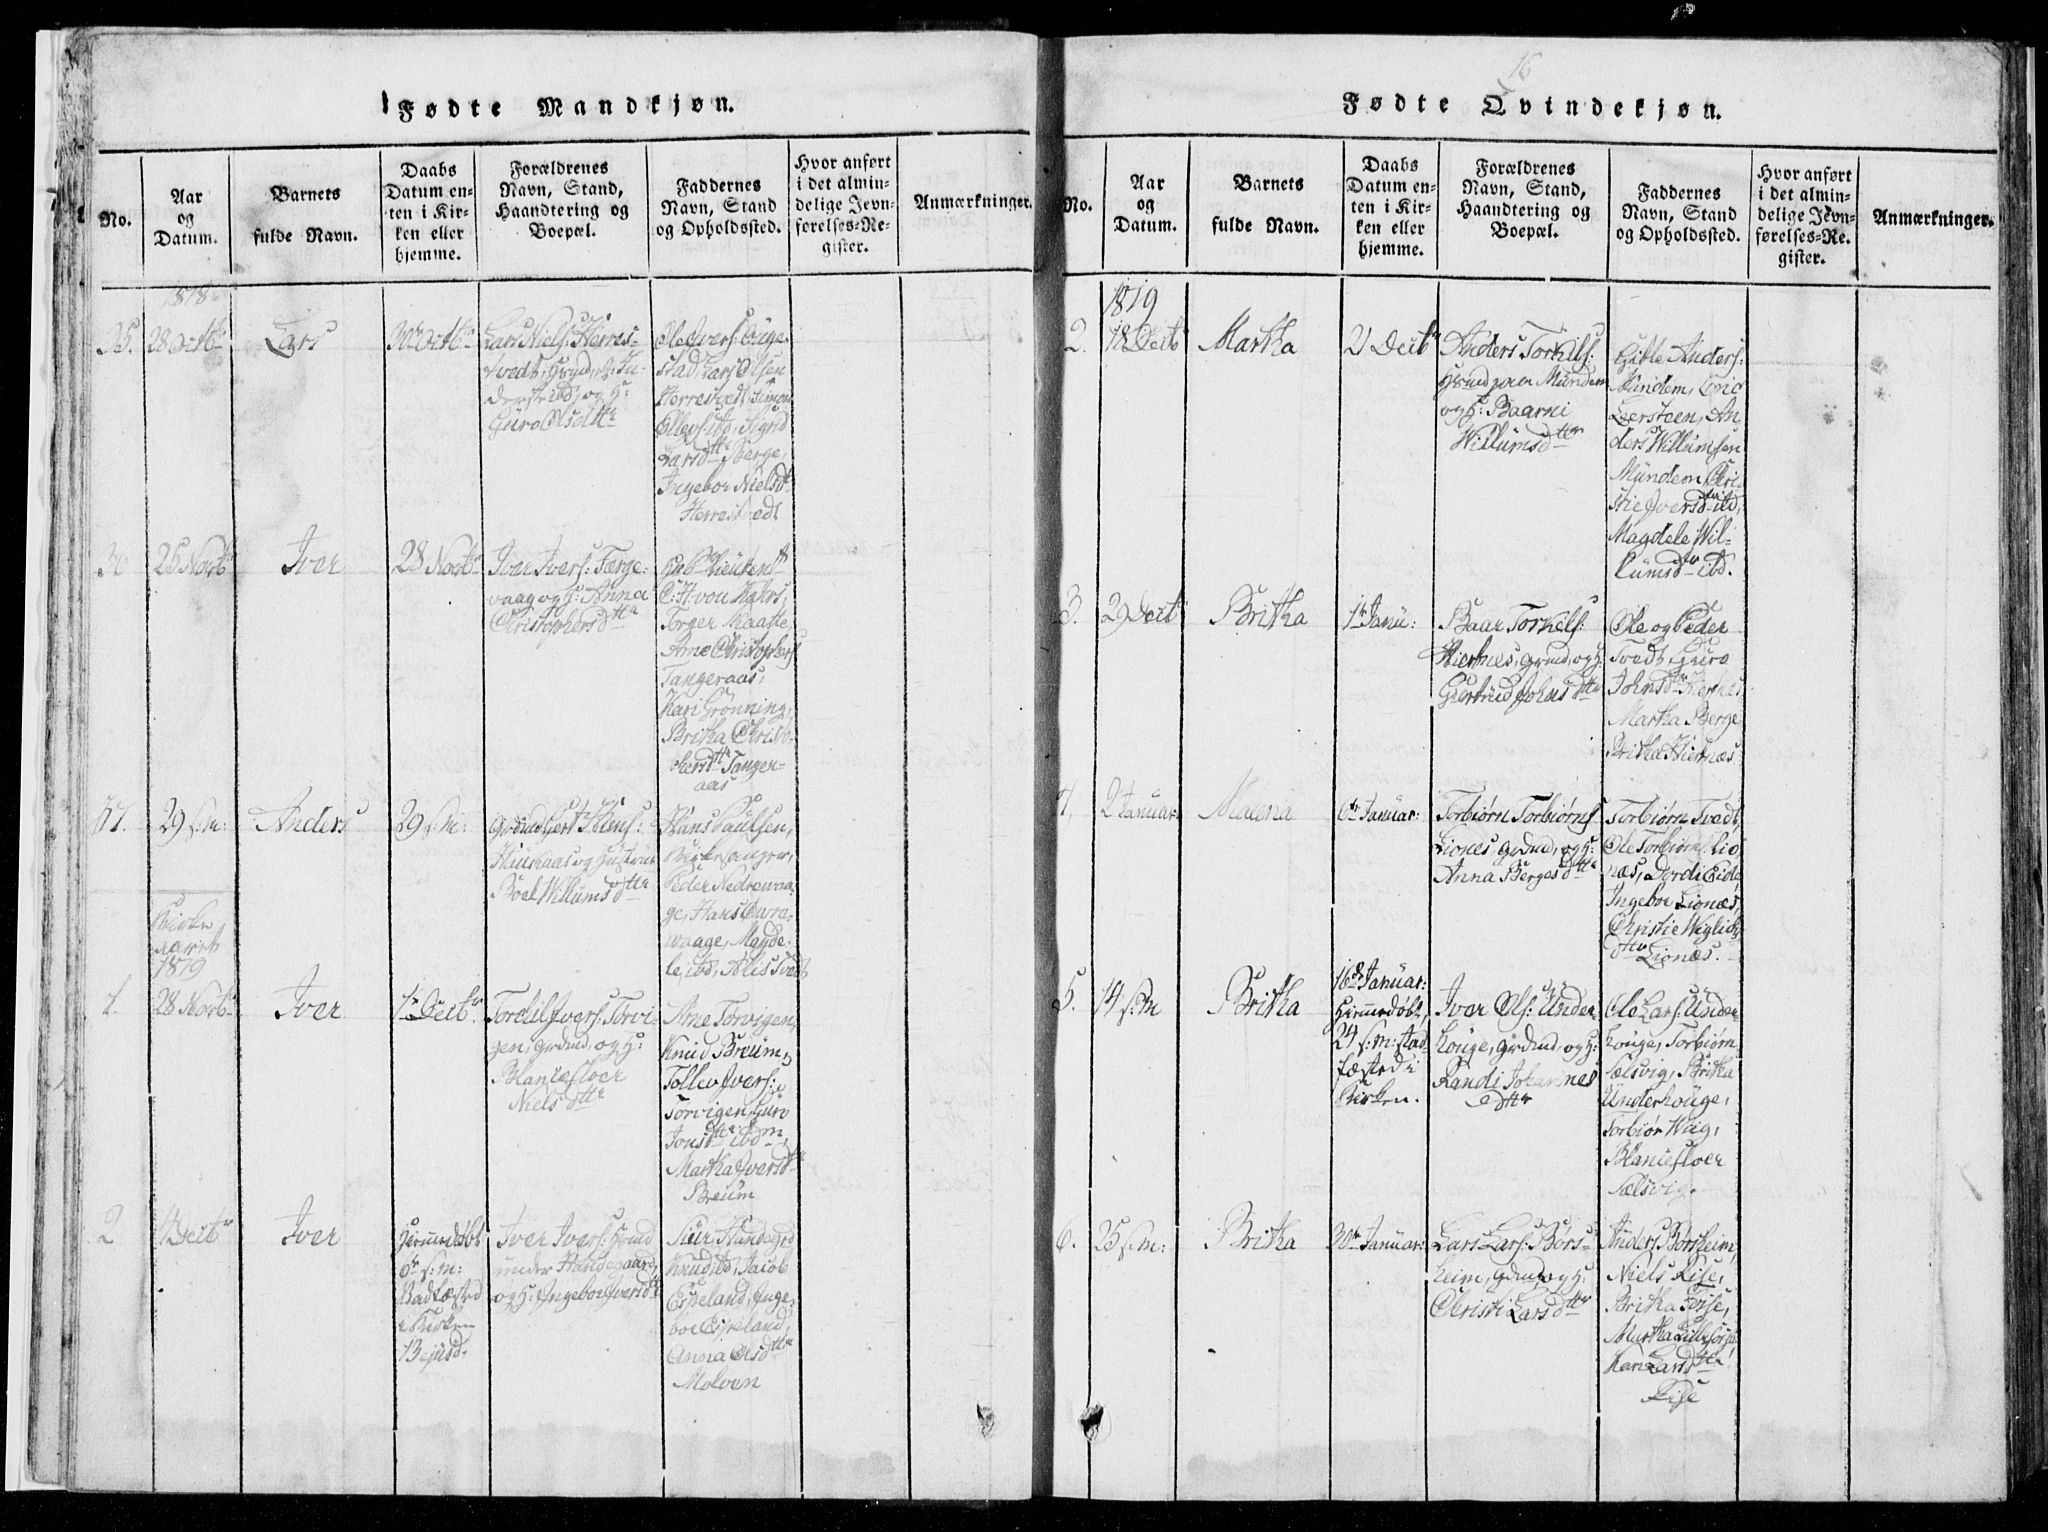 Fødte Mandkjøn.
No.
Aar
og
Datum.
Barnets
fulde Navn.
Daabs
Datum en-
ten i Kir-
ken eller
hjemme.
Forældrenes
Navn, Stand,
Haandtering og
Boepæl.
Faddernes
Navn, Stand
og Opholdssted.
Hvor anført
i det almin-
delige Jevn-
førelses-Re-
gister.
Anmærkninger.
1818
35.
28 Octbr
Lars
30te Octbr
Lars Niels: Herres-
tvedt,
og H:
Guro Olsdttr
Ole Ivers:
stad, Lars Olsen
Herrestvedt, Simon
Ellevs: ibd, Sigrid
Larsdttr Berge,
Ingebor Nielsd
Herrestvedt
36
25 Novbr
Iver
28 Novbr
Iver Ivers: Færge-
vaag og H: Anna
Christophersdttr
C: H: von
Torger Maaste
Arne Christophers
Tangeraas,
Kari Grønning,
Britha Christo-
phersdttr Tanger-
aas
37.
29 s: m:
Anders
29 s: m:
og Hustrue
Boel Willumsdttr
Hans Paulsen,
Kirkesanger,
Peder Nedrewaa-
ge, Hans
waage, Magde-
le ibd, Alis Tvedt
Kirke
aaret
1819
1.
28 Novbr
Iver
1te Decbr
Torchil Ivers: Torvi-
gen, grdmd, og H:
Blancefloer
Nielsdttr
Arne Torvigen,
Knud Breum,
Tollev Ivers:
Torvigen, Guro
Jonsdttr ibdm,
Martha Iversdttr
Breum
2
4 Decbr
Iver
Hiemmedøbt
6te s: m:
Stadfæsted
i Kirken
13 ejusd.
Iver Ivers: Hsmd
under Handegaard,
og H: Ingebor Iversdtt
Handegrd
Knud ibd, Jacob
Espeland, Inge-
bor Espeland,
Anna Olsdttr
Molven
16
Fødte Qvindekjøn.
No.
Aar
og
Datum.
Barnets
fulde Navn.
Daabs
Datum en-
ten i Kir-
ken eller
hjemme.
Forældrenes
Navn, Stand,
Haandtering og
Boepæl.
Faddernes
Navn, Stand
og Opholdssted.
Hvor anført
i det almin-
delige Jevn-
førelses-Re-
gister.
Anmærkninger.
1819
2.
18 Decb
Martha
21 Decbr
Anders Torkils:
Hsmd paa Mundem
og H: Baarni
Willumsdttr
Gitle Anders:
Mundem, Eric
Leersteen, An-
ders Willumsen
Mundem, Chri-
stie Iversdttr ibd,
Magdele Wil-
lumsdtr ibd.
3.
29 Decbr
Britha
1te Janu:
Baar Torkels:
Hiertnes, grmd, og H:
Giertrud Johnsdttr
Ole og Peder
Tvedt, Guro
Johnsdtr
Martha Berge
Britha
4.
2 Januar:
Malena
6te Januar:
Torbiørn Torbiørns
Liones grdmd, og H:
Anna Bergesdttr
Torbiørn Tvedt,
Ole Torbiørns: Lio-
næs, Dordi Eide,
Ingebor Lionæs,
Christie Wiglichs
dttr Lionæs.
5.
14 s: m
Britha
16de Januar:
Hiemmedøbt,
24 s: m: stad-
fæsted i
Kirken.
Iver Ols: Under-
houge, grdmd, og H:
Randi Johannes
dttr
Ole Lars: Under-
houge, Torbiørn
Sælsvig, Britha
Underhouge,
Torbiør Wiig,
Blancefloer
Sælsvig.
6.
25 s: m:
Britha
30te Januar:
Lars Lars: Børs-
heim, grdmd, og H:
Christi Larsdttr
Anders Børsheim,
Niels Riise,
Britha
Martha
Kari Larsdttr
Riise